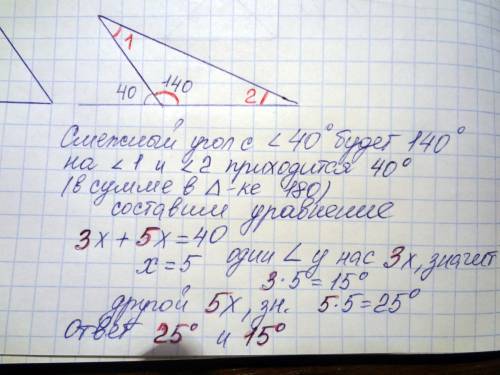 1
40 140 2
Смежный угол с ∠40° будет 140°
на ∠1 и ∠2 приходится 40°
(в сумме в Δ-ке 180)
составим уравнение
3x + 5x = 40
x = 5 один ∠ у нас 3x, значит
3·5 = 15°
другой 5x, зн. 5·5 = 25°
ответ 25° и 15°